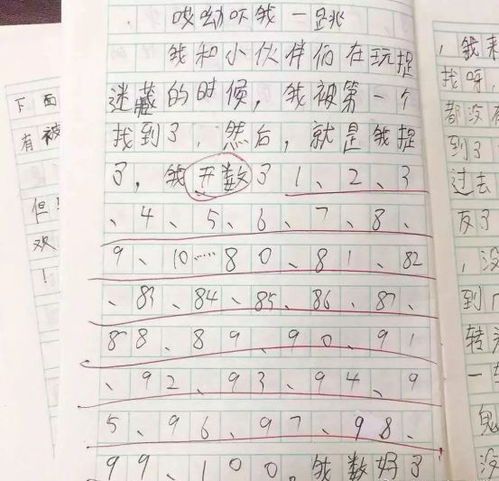 哎呦吓我一跳
我和小伙伴们在玩捉
迷藏的时候，我被第一个
找到了，然后，就是我捉
了，我开数了1、2、3
、4、5、6、7、8、
9、10……80、81、82
、83、84、85、86、87、
88、89、90、91
、92、93、94、9
5、96、97、98、
99、100，我数好了
下面
有被
但
欢
！
，我来
找呀，
都没有
到了
过去
友了
，没
到
转
一
鬼
没